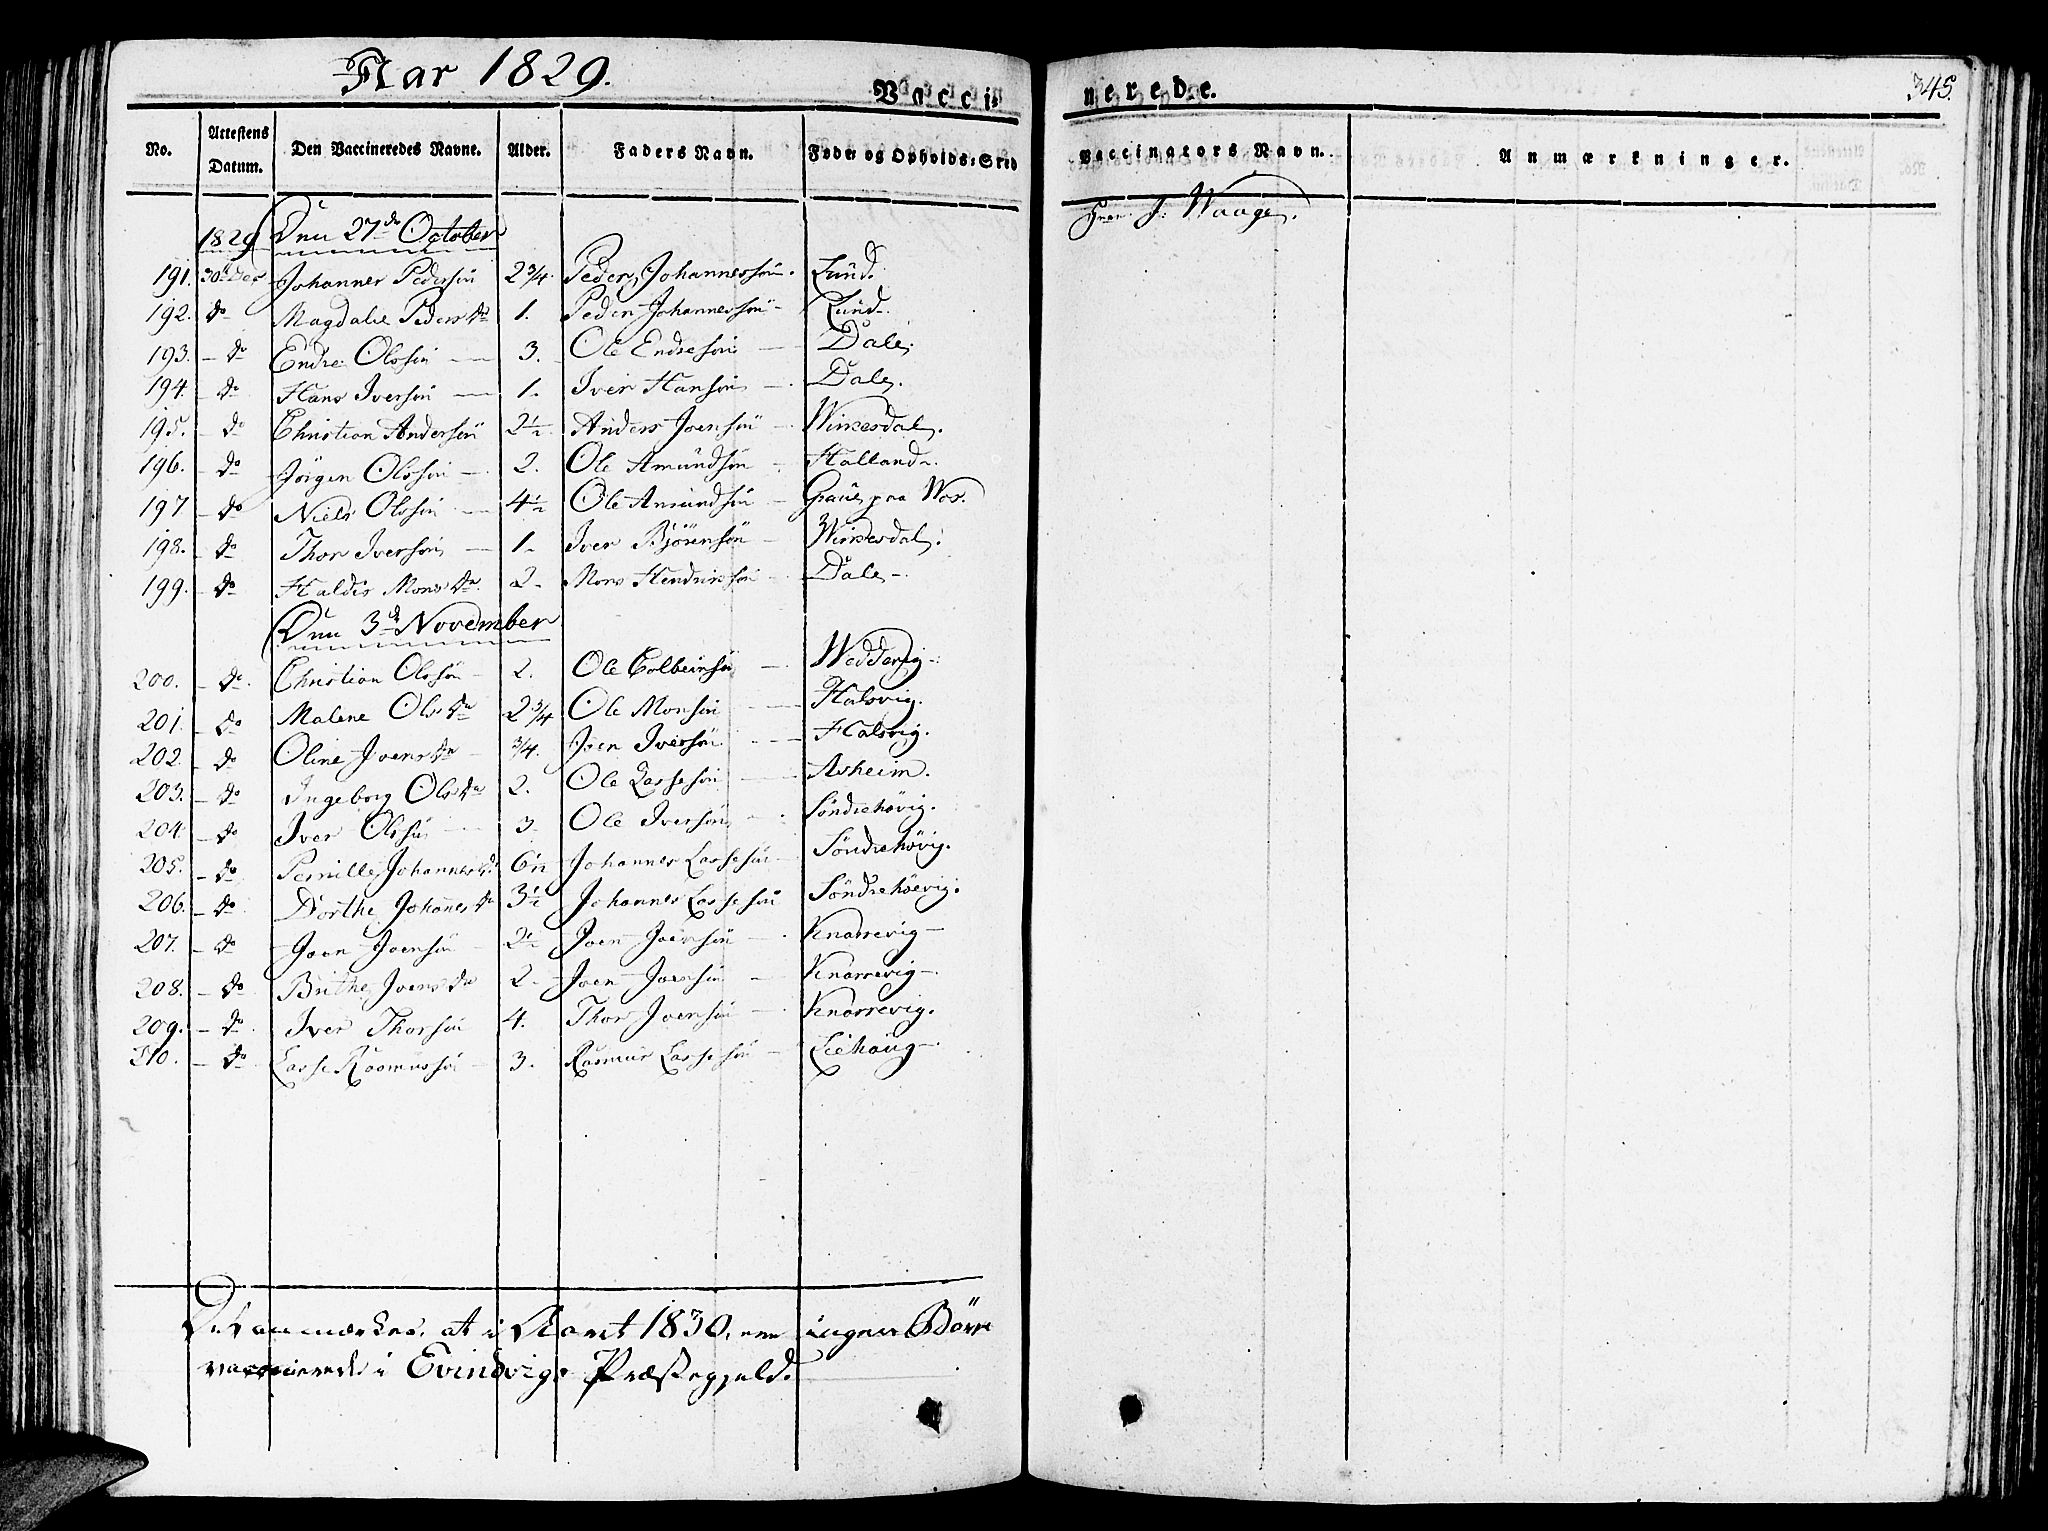 Aar 1829.
Vacci
nerede.
345.
No. Attestens Datum. Den Vaccineredes Navne. Alder. Faders Navn. Føde og Opholds-Sted
Vaccinators Navn. Anmærkninger.
1829 Den 27de October
J. Waage.
191. 30te Dec Johannes Pedersön 2 3/4. Peder Johannessön. Lund.
192. do Magdale Pedersdr 1. Peder Johannessön Lund.
193. do Endre Olssön 3. Ole Endresön Dale.
194. do Hans Iversön 1. Iver Hansön Dale.
195. do Christian Andersön 2 1/2. Anders Joensön Wirkesdal.
196. do Jörgen Olssön 2. Ole Amundsön Halland.
197 do Niels Olssön 4 1/2 Ole Amundsön paa
198. do Thor Iversön 1. Iver Björnsön Wirkesdal.
199. do Haldis Monsdr. 2. Mons Hendrikssön Dale.
Den 3de November
200. do. Christian Olssön 2. Ole Colbeinsön
201. do Malene Olsdr 2 3/4 Ole Monsön Halsvig.
202. do Oline Joensdr 3/4. Joen Iversön Halsvig.
203. do Ingeborg Olsdr 2. Ole Lassesön Asheim.
204. do Iver Olssön 3. Ole Iversön Söndrehövig.
205. do Pernille Johannesd. 6 1/2 Johannes Lassesön Söndrehövig.
206. do Dorthe Johanesdr 3 1/2 Johannes Lassesön Söndrehöevig.
207. do Joen Joensön 2 1/2 Joen Joensön Knarrevig
208. do Brithe Joensdr 2. Joen Joensön Knarrevig.
209. do Iver Thorsön 4. Thor Joensön Knarrevig.
210. do Lasse Rasmussön 3. Rasmus Lassesön Liehaug.
Det anmærkes, at i Aaret 1830, ere ingen Börn
vaccinerede i Evindvigs Præstegjeld.